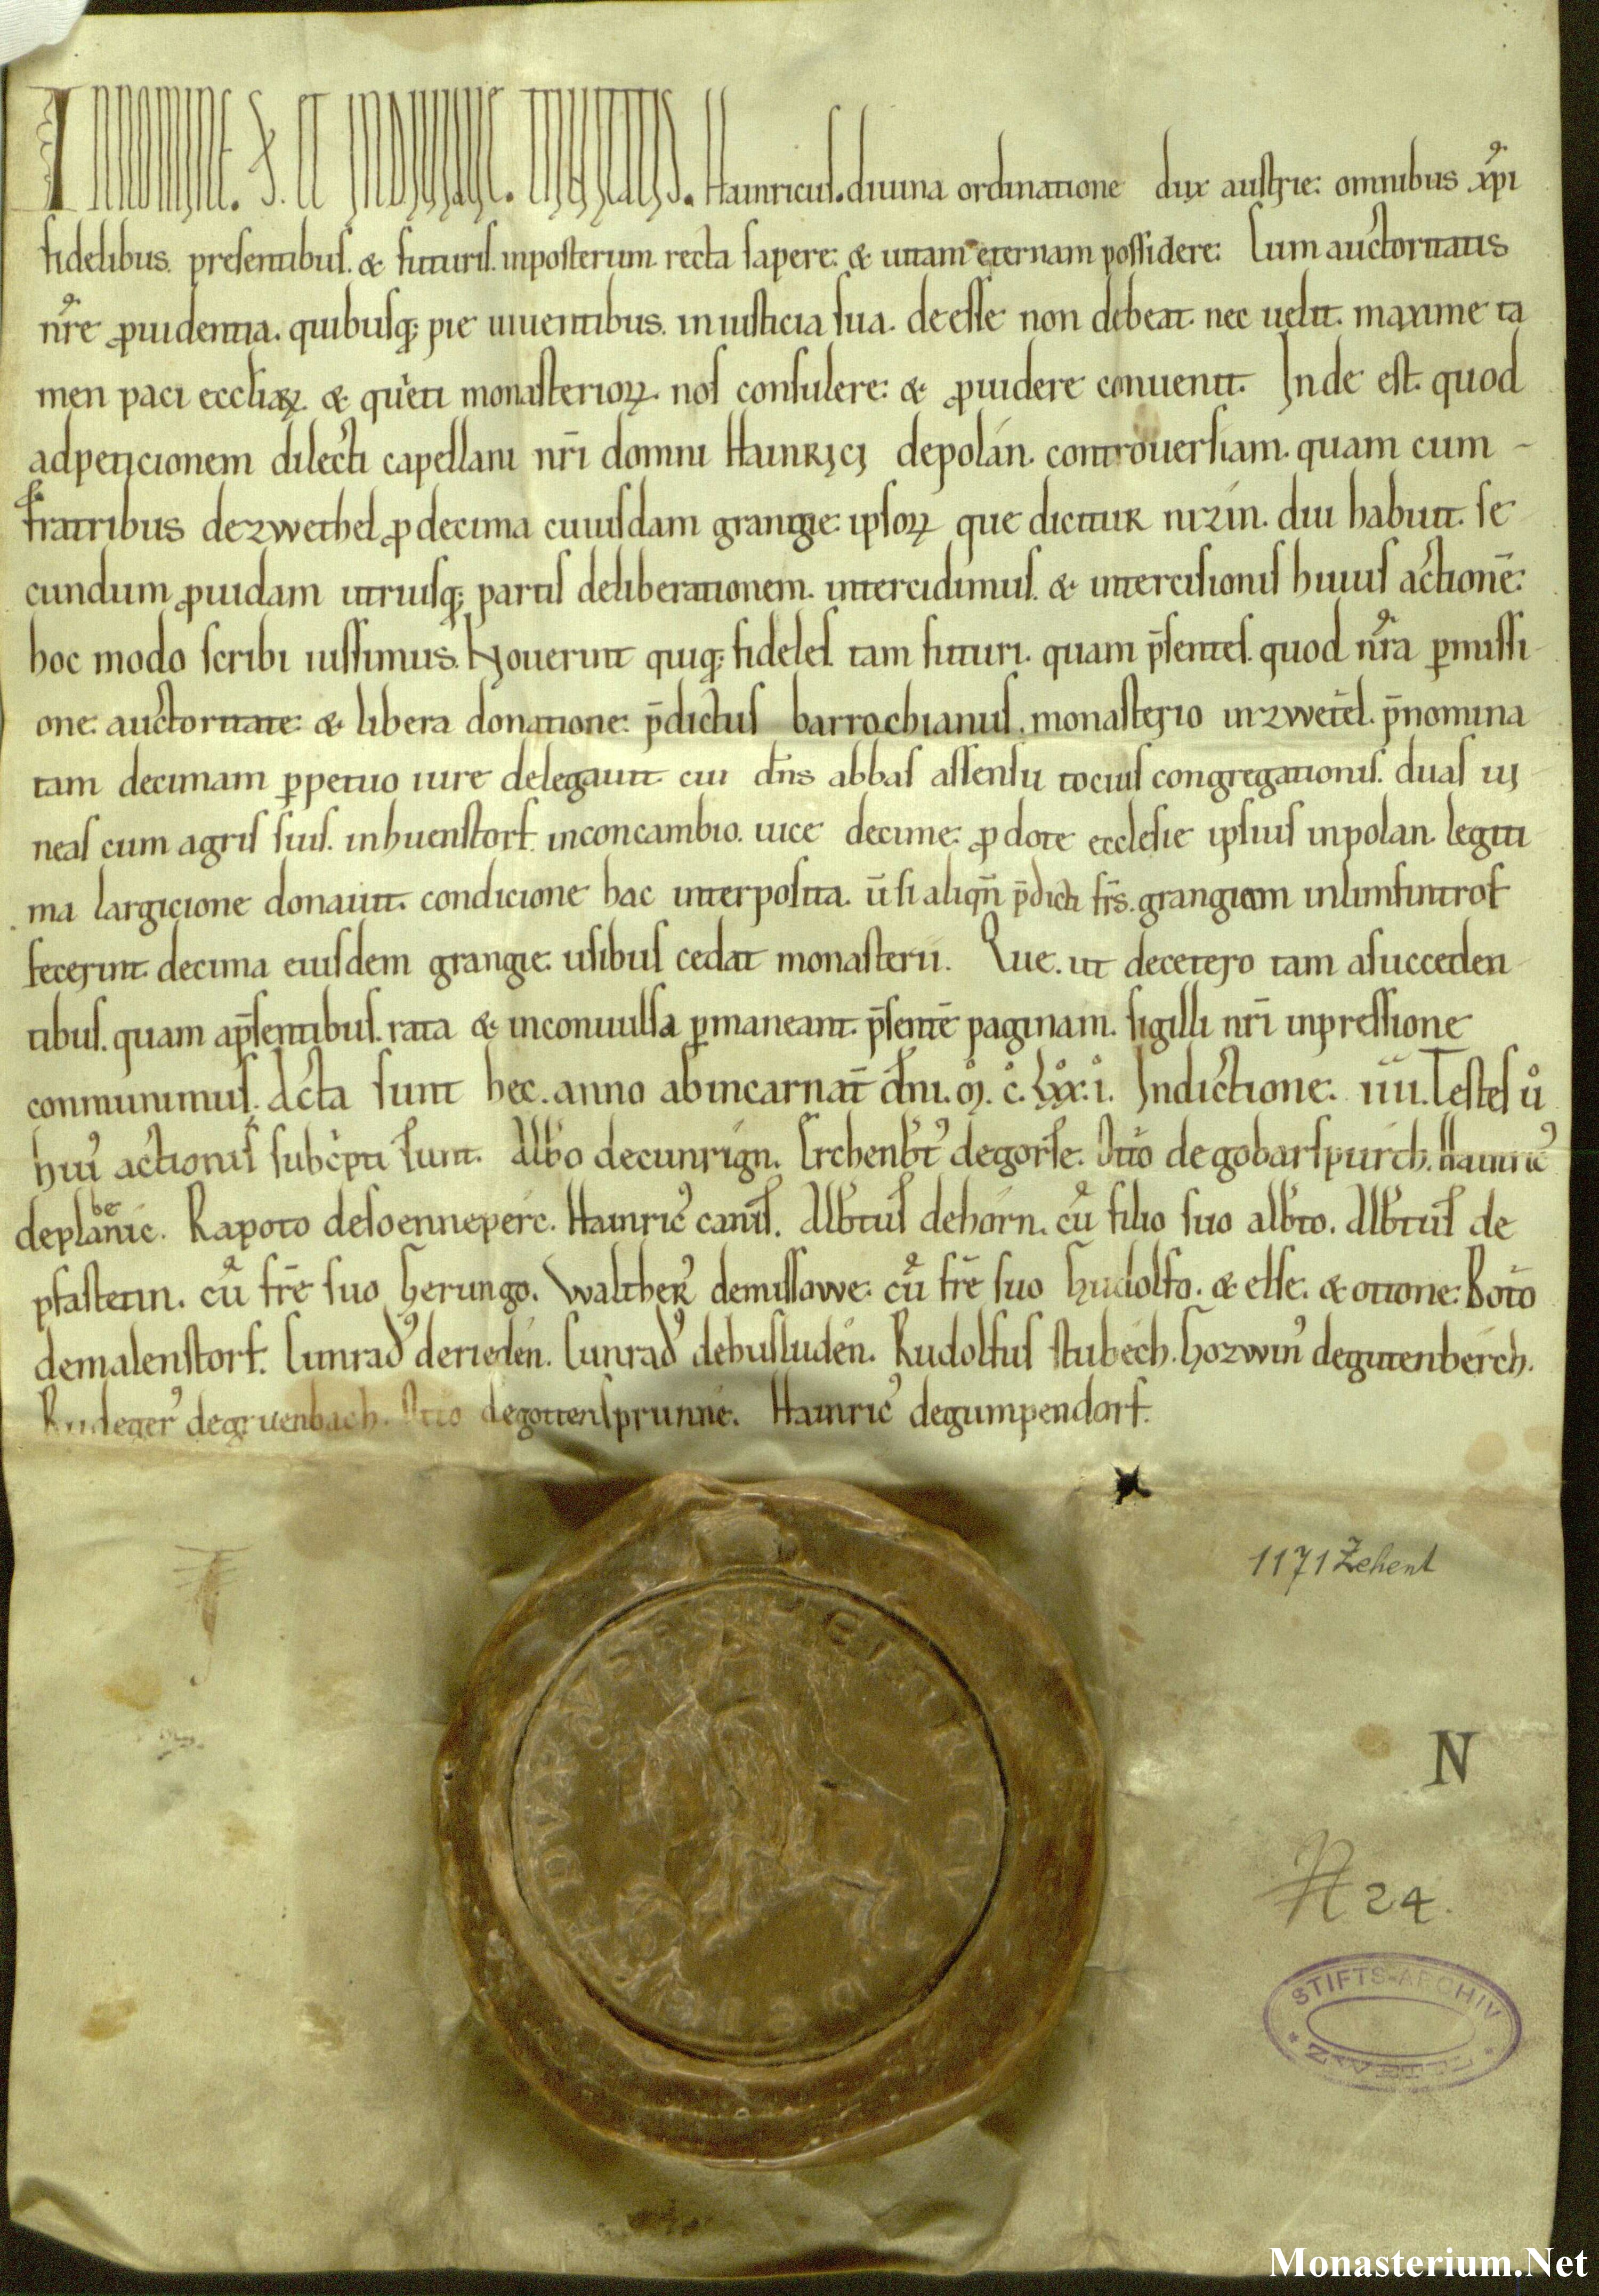 IN NOMINE. S. ET INDIVIDUE. TRINITATIS. Hainricus. diuina ordinatione dux austrie: omnibus xp̄i
fidelibus. presentibus. & futuris. inposterum. recta sapere: & uitam eternam possidere: Cum auctoritatis
nr̄e ꝓuidentia. quibusq; pie uiuentibus. in iusticia sua. deesse non debeat. nec uelit. maxime ta
men paci eccl̄iaꝝ. & quieti monasterioꝝ. nos consulere: & ꝓuidere conuenit. Inde est. quod
adpeticionem dilecti capellani nr̄i domni HainRici depolan. controuersiam. quam cum -
fratribus dezwethel ꝓ decima cuiusdam grangie: ipsoꝝ que dicituR nizin. diu habuit. se
cundum ꝓuidam utriusq; partis deliberationem. intercidimus. & intercisionis huius actionē:
hoc modo scribi iussimus. Nouerint quiq; fideles. tam futuri. quam p̄sentes. quod nr̄a ꝑmissi
one. auctoritate: & libera donatione: p̄dictus barrochianus. monasterio inzwetel. p̄nomina
tam decimam ꝑpetuo iure delegauit. cui dn̄s abbas assensu tocius congregationis. duas ui
neas cum agris suis. inhuenstorf. inconcambio. uice decime: ꝓ dote ecclesie ipsius inpolan. legiti
ma largicione donauit. condicione hac interposita. ū si aliqn̄ p̄dicti frs̄. grangiam inlimfintrof
fecerint. decima eiusdem grangie. usibus cedat monasterii. Que. ut decetero tam asucceden
tibus. quam ap̄sentibus. rata & inconuulsa ꝑmaneant. p̄sentē paginam. sigilli nr̄i inpressione
communimus. Acta sunt hec. anno abincarnat̄ dn̄i. M. C. LXX. I. Indictione: IIII. Testes ů
hui' actionis subscͥpti sunt. Albͦo decunrign. Erchenbt̄' degorse. Otto degobarspurch. Hainric'
deplanbenic. Rapoto desoenneperc. Hainric' canis. Alb̄tus dehorn. cū filio suo alb̄to. Alb̄tus de
pfastetin. cū frē suo herungo. Walther' demissowe: cū frē suo hudolfo. & elle. & ottone: Boto
demalenstorf. Cunrad' derieden. Cunrad' debusluden. Rudolfus stubech. hozwin' degutenberch.
Rudeger' degruenbach. Otto degottensprunne. Hainric' degumpendorf.
1171 Zehent
N
N 24.
STIFTS-ARCHIV
ZWETTL
Monasterium.Net